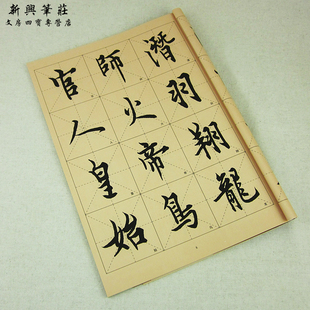 新興筆莊
文房四寶專營店
潛羽翔龍
師火帝鳥
官人皇始